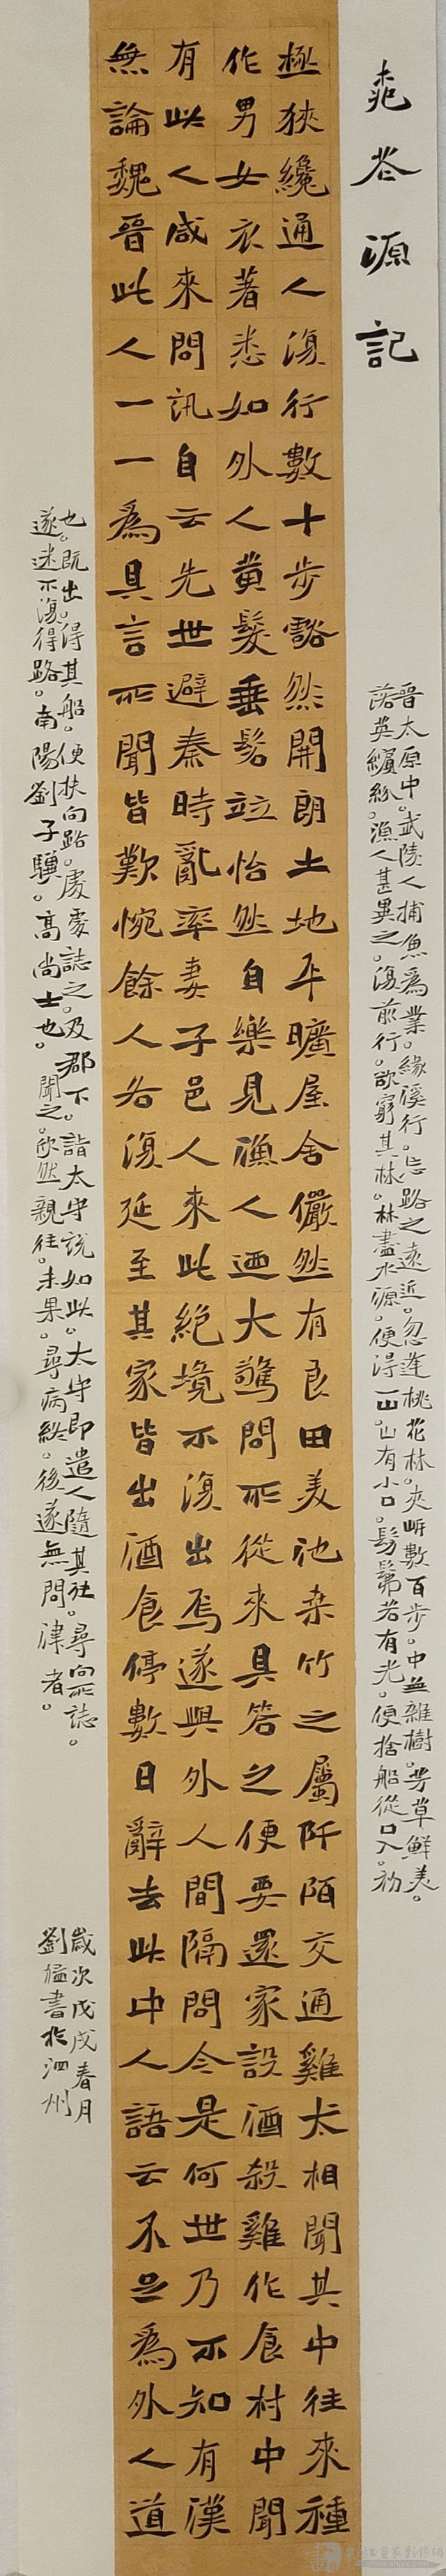 桃花源記
晉太原中。武陵人捕魚爲業。緣溪行。忘路之遠近。忽逢桃花林。夾岸數百步。中無雜樹。芳草鮮美。
落英繽紛。漁人甚異之。復前行。欲窮其林。林盡水源。便得一山。山有小口。髣髴若有光。便捨船從口入。初
極狹纔通人復行數十步豁然開朗土地平曠屋舍儼然有良田美池桑竹之屬阡陌交通雞犬相聞其中往來種
作男女衣著悉如外人黃髮垂髫竝怡然自樂見漁人迺大驚問所從來具答之便要還家設酒殺雞作食村中聞
有此人咸來問訊自云先世避秦時亂率妻子邑人來此絕境不復出焉遂與外人間隔問今是何世乃不知有漢
無論魏晉此人一一爲具言所聞皆歎惋餘人各復延至其家皆出酒食停數日辭去此中人語云不足爲外人道
也。既出。得其船。便扶向路。處處誌之。及郡下。詣太守說如此。太守即遣人隨其往。尋向所誌。
遂迷不復得路。南陽劉子驥。高尚士也。聞之。欣然親往。未果。尋病終。後遂無問津者。
歲次戊戌春月
劉猛書於泗州